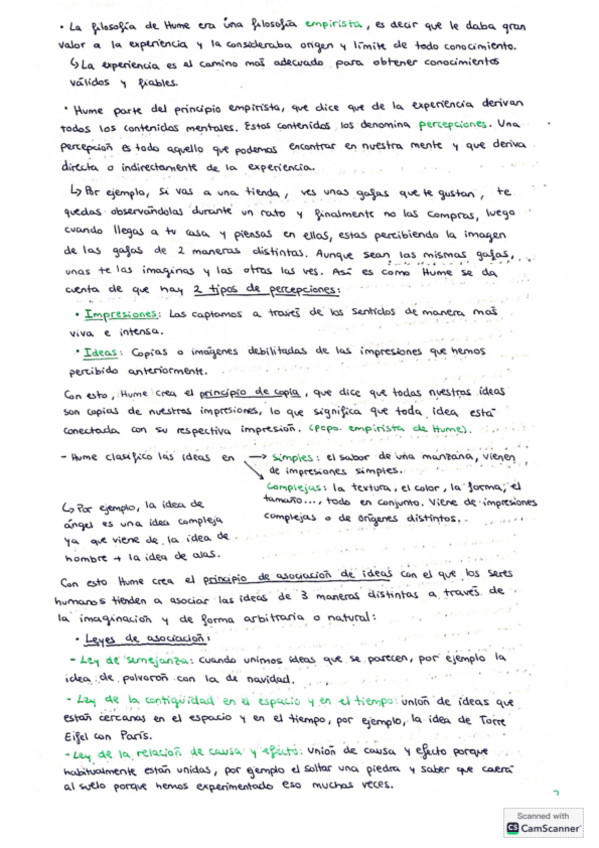 • La filosofía de Hume era una filosofía empirista, es decir que le daba gran
valor a la experiencia y la consideraba origen y límite de todo conocimiento.
↳ La experiencia es el camino más adecuado para obtener conocimientos
válidos y fiables.
• Hume parte del principio empirista, que dice que de la experiencia derivan
todos los contenidos mentales. Estos contenidos los denomina percepciones. Una
percepción es todo aquello que podemos encontrar en nuestra mente y que deriva
directa o indirectamente de la experiencia.
↳ Por ejemplo, si vas a una tienda, ves unas gafas que te gustan, te
quedas observándolas durante un rato y finalmente no las compras, luego
cuando llegas a tu casa y piensas en ellas, estas percibiendo la imagen
de las gafas de 2 maneras distintas. Aunque sean las mismas gafas,
unas te las imaginas y las otras las ves. Así es como Hume se da
cuenta de que hay 2 tipos de percepciones:
• Impresiones: Las captamos a través de los sentidos de manera más
viva e intensa.
• Ideas: Copias o imágenes debilitadas de las impresiones que hemos
percibido anteriormente.
Con esto, Hume crea el principio de copia, que dice que todas nuestras ideas
son copias de nuestras impresiones, lo que significa que toda idea está
conectada con su respectiva impresión. (Pcpo. empirista de Hume).
- Hume clasificó las ideas en → Simples: el sabor de una manzana, vienen
de impresiones simples.
Complejas: la textura, el color, la forma, el
tamaño..., todo en conjunto. Viene de impresiones
complejas o de orígenes distintos.
↳ Por ejemplo, la idea de
ángel es una idea compleja
ya que viene de la idea de
hombre + la idea de alas.
Con esto Hume crea el principio de asociación de ideas con el que los seres
humanos tienden a asociar las ideas de 3 maneras distintas a través de
la imaginación y de forma arbitraria o natural:
• Leyes de asociación:
- Ley de semejanza: cuando unimos ideas que se parecen, por ejemplo la
idea de polvorón con la de navidad.
- Ley de la contigüidad en el espacio y en el tiempo: unión de ideas que
están cercanas en el espacio y en el tiempo, por ejemplo, la idea de Torre
Eifel con París.
- Ley de la relación de causa y efecto: Unión de causa y efecto porque
habitualmente están unidas, por ejemplo el soltar una piedra y saber que caerá
al suelo porque hemos experimentado eso muchas veces.
Scanned with
CS CamScanner